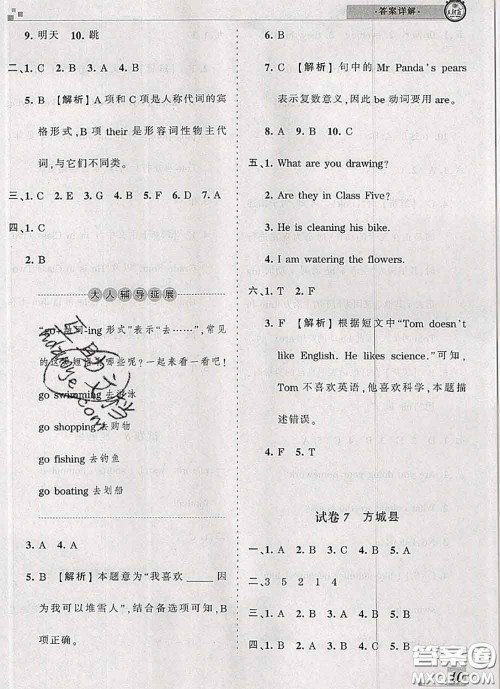 ·答案详解·
9. 明天　10. 跳
二、1. C　2. C　3. B　4. A
5. B　【解析】A项和C项是人称代词的宾
格形式,B项 their 是形容词性物主代
词,与它们不同类。
三、1. C　2. E　3. G　4. B　5. F　6. D　7. A
四、1. C
2. B
大人辅导延展
"go+动词-ing 形式"表示"去……",常见
的这类短语有哪些呢?一起来看一看吧!
go swimming 去游泳
go shopping 去购物
go fishing 去钓鱼
go boating 去划船
3. A　4. A
5. B　【解析】本题意为"我喜欢____因
为我可以堆雪人",结合备选项可知,B
项正确。
6. B　7. C　【解析】句中的 Mr Panda's pears
表示复数意义,因此 be 动词要用 are。
8. A　9. B　10. C
五、1. What are you drawing?
2. Are they in Class Five?
3. He is cleaning his bike.
4. I am watering the flowers.
六、1. T　2. F
3. F　【解析】根据短文中"Tom doesn't
like English. He likes science."可知,
Tom 不喜欢英语,他喜欢科学,本题描
述错误。
4. F　5. T
试卷 7　方城县
一、1. A　2. B　3. C　4. B　5. A
二、3　5　2　1　4
三、1. B　2. A　3. B　4. A　5. B
四、1. B　2. A　3. B　4. C　5. A
答案圈
MXQE.COM